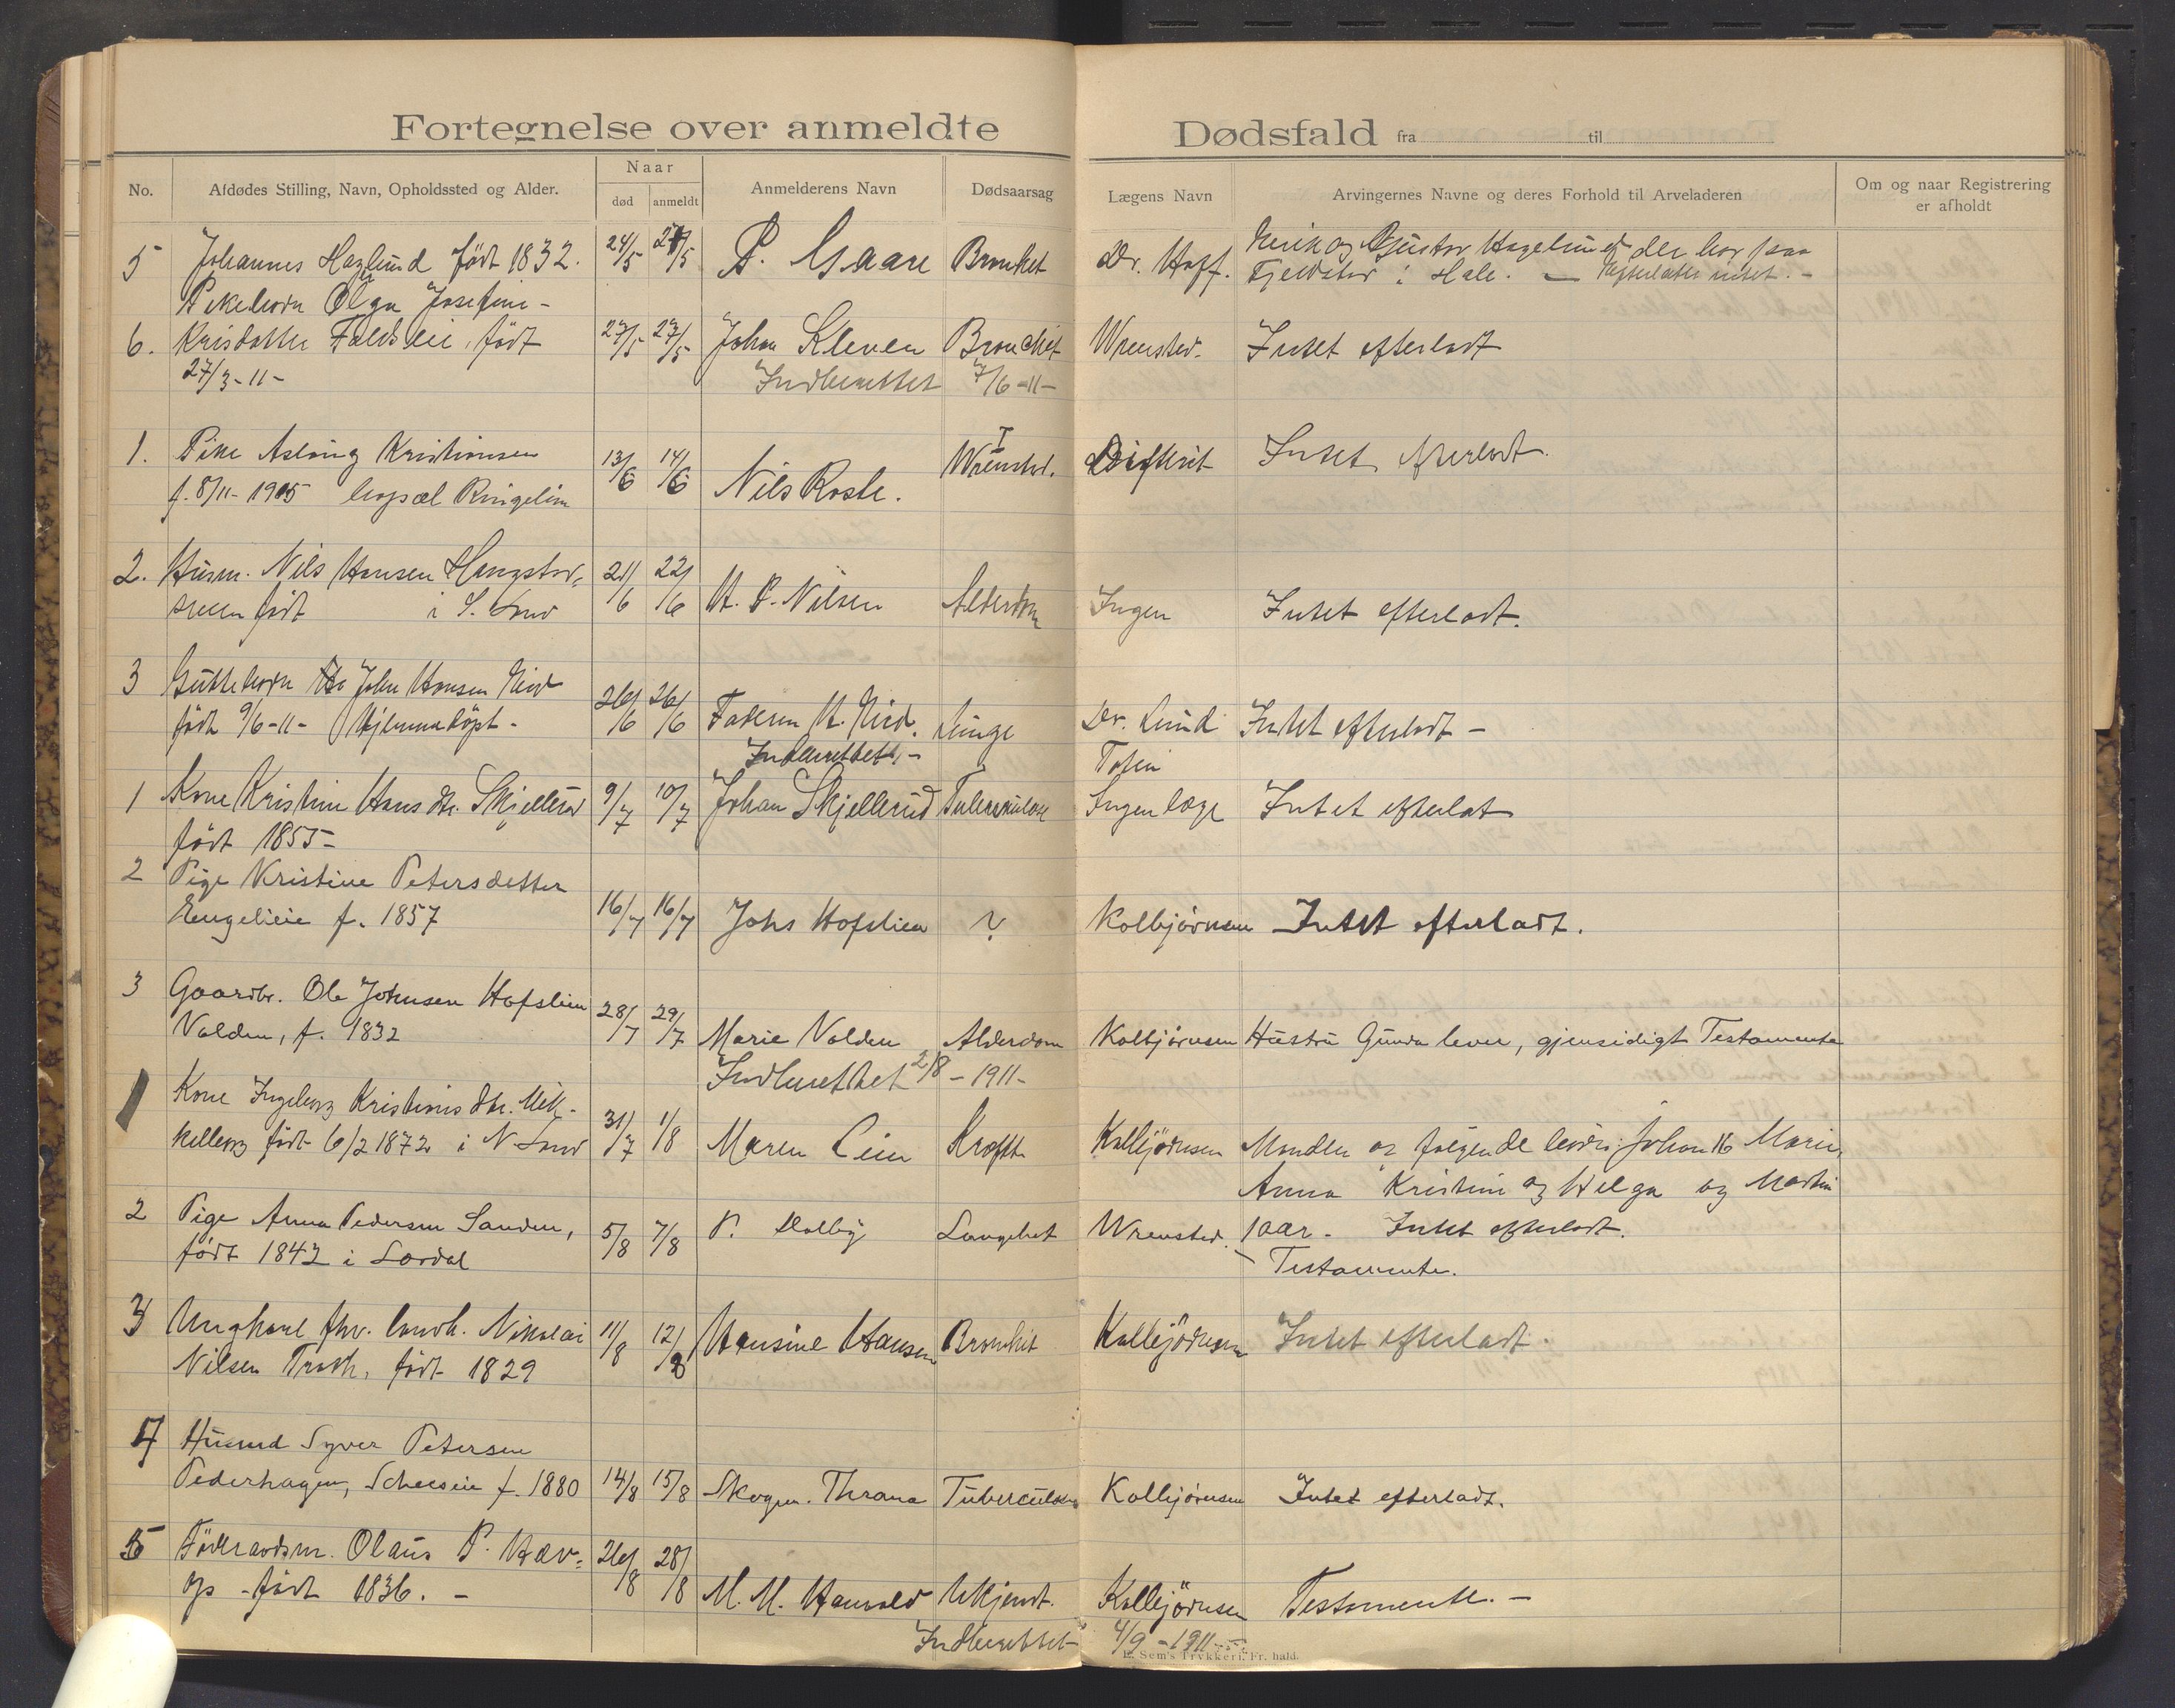 Fortegnelse over anmeldte Dødsfald fra til
No.
Afdødes Stilling, Navn, Opholdssted og Alder.
Naar
død anmeldt
Anmelderens Navn
Dødsaarsag
Lægens Navn
Arvingernes Navne og deres Forhold til Arveladeren
Om og naar Registrering
er afholdt
5 Johannes Haglund født 1832. 24/5 27/5 P. Gaare Bronkit Dr. Hoff. og Gustav Hagelund der bor paa
Fjeldstad i intet. -
Pikebarn Olga Josefine -
6. Krisdatter født 27/5 27/5 Johan Kleven Bronchit Wrensted. Intet efterladt
27/3-11- Indberettet 7/6-11-
1. Pike Aslaug Kristiansen 13/6 14/6 Nils Roste. Wrensted. Difterit Intet efterladt.
f. 8/11-1905 Ringelien
2. Husm. Nils Hansen 21/6 22/6 H. P. Nilsen Alderdom Ingen Intet efterladt.
født i S. Land
3 Guttebarn John Hansen 26/6 26/6 Faderen H. Lunge Dr. Lund Intet efterladt -
født 9/6-11- Hjemmedöpt - Indberettet. - Toten
1 Kone Kristine Hansdtr. Skjellerud 9/7 10/7 Johan Skjellerud Tuberkulose Ingen læge Intet efterlat
født 1855-
2 Pige Kristine Petersdatter
Engelieie f. 1857 16/7 16/7 Johs Hofslien ? Kolbjørnsen Intet efterladt.
3 Gaardbr. Ole Johnsen Hofslien 28/7 29/7
Volden, f. 1832 Marie Volden Alderdom Kolbjørnsen Hustru Gunda lever, gjensidigt Testamente
Indberettet 2/8 - 1911-
1 Kone Ingeborg Kristiansdtr. Mik-
kelberg født 6/2 1872 i N. Land 31/7 1/8 Maren Lien Kræft Kolbjörnsen Manden og følgende Johan 16 Marie,
Anna Kristine og Helga og Martin
2 Pige Anna Pedersen Sanden, 5/8 7/8 P. Dalby Lungebet Wrensted. 1 aar. - Intet efterladt.
født 1842 i Lordal Testamente.
3 Ungkarl fhv. landh. Nikolai 11/8 12/8 Hansine Hansen Bronkit Kolbjörnsen Intet efterladt.
Nilsen født 1829
4 Husmd Syver Petersen
Pederhagen, f. 1880 14/8 15/8 Skogm. Thrana Tuberculose Kolbjørnsen Intet efterladt.
5 Föderaadsm. Olaus P. 26/8 28/8
- født 1836. - M. M. Hanvold Ukjendt. Kolbjörnsen Testamente. -
Indberettet 4/9 - 1911 -
E. Sem's Trykkeri. Fr. hald.